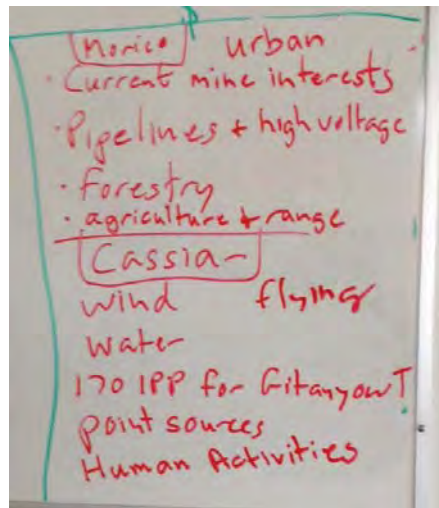 Morice urban
• Current mine interests
• Pipelines + high voltage
• Forestry
• agriculture + range
Cassiar
wind flying
water
170 IPP for Gitanyow T.
point sources
Human Activities